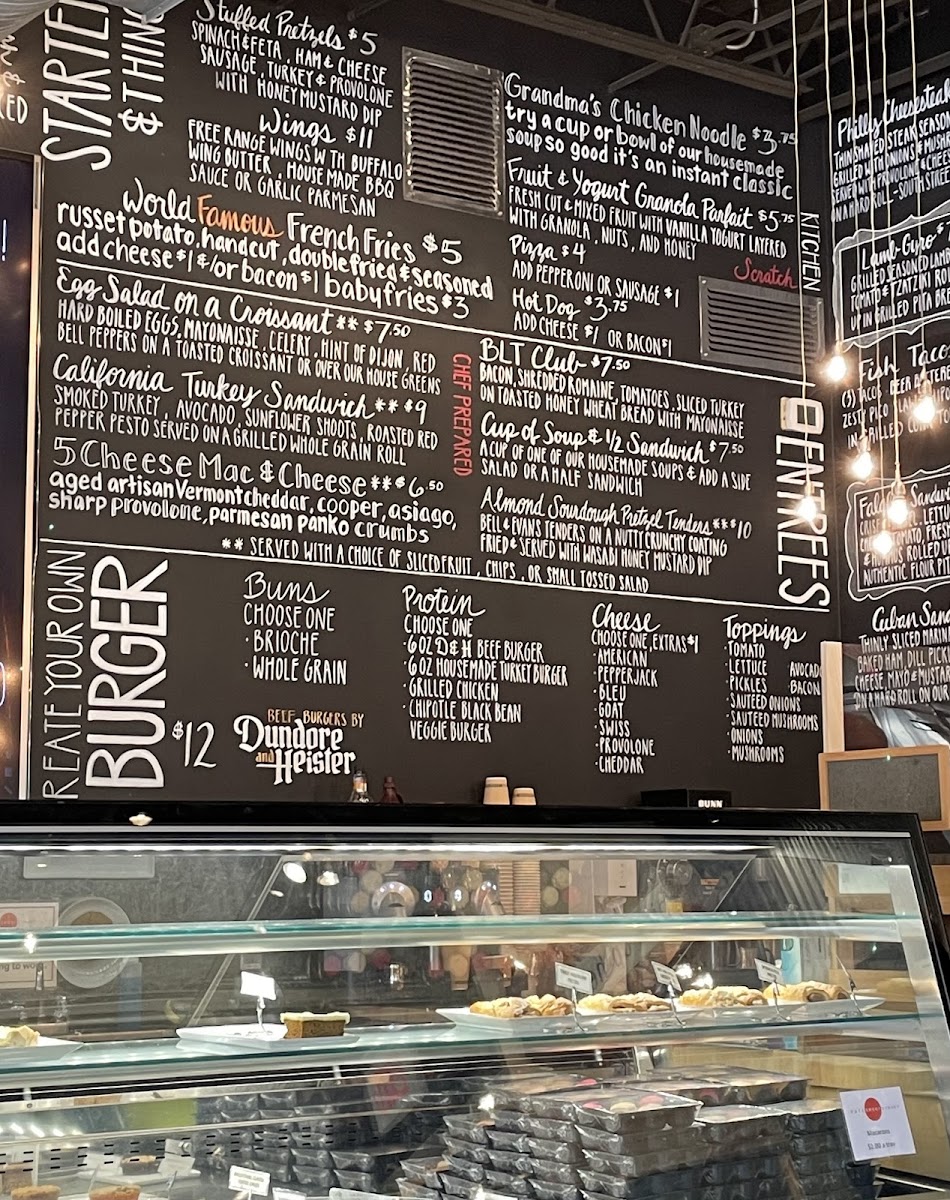 STARTE
& THIN
Stuffed Pretzels $5
SPINACH & FETA, HAM & CHEESE
SAUSAGE, TURKEY & PROVOLONE
WITH HONEY MUSTARD DIP
Wings $11
FREE RANGE WINGS WITH BUFFALO
WING BUTTER, HOUSE MADE BBQ
SAUCE OR GARLIC PARMESAN
World Famous French Fries $5
russet potato, handcut, double fried & seasoned
add cheese $1 &/or bacon $1 baby fries $3
Grandma's Chicken Noodle $3.75
try a cup or bowl of our housemade
soup so good it's an instant classic
Fruit & Yogurt Granola Parfait $5.75
FRESH CUT & MIXED FRUIT WITH VANILLA YOGURT LAYERED
WITH GRANOLA, NUTS, AND HONEY
Pizza $4
ADD PEPPERONI OR SAUSAGE $1
Hot Dog $3.75
ADD CHEESE $1 OR BACON $1
Scratch
KITCHEN
Egg Salad on a Croissant ** $7.50
HARD BOILED EGGS, MAYONAISSE, CELERY, HINT OF DIJON, RED
BELL PEPPERS ON A TOASTED CROISSANT OR OVER OUR HOUSE GREENS
California Turkey Sandwich ** $9
SMOKED TURKEY, AVOCADO, SUNFLOWER SHOOTS, ROASTED RED
PEPPER PESTO SERVED ON A GRILLED WHOLE GRAIN ROLL
5 Cheese Mac & Cheese ** $6.50
aged artisan Vermont cheddar, cooper, asiago,
sharp provollone, parmesan panko crumbs
CHEF PREPARED
BLT Club $7.50
BACON, SHREDDED ROMAINE, TOMATOES, SLICED TURKEY
ON TOASTED HONEY WHEAT BREAD WITH MAYONAISSE
Cup of Soup & 1/2 Sandwich $7.50
A CUP OF ONE OF OUR HOUSEMADE SOUPS & ADD A SIDE
SALAD OR A HALF SANDWICH
Almond Sourdough Pretzel Tenders ** $10
BELL & EVANS TENDERS ON A NUTTY CRUNCHY COATING
FRIED & SERVED WITH WASABI HONEY MUSTARD DIP
ENTREES
** SERVED WITH A CHOICE OF SLICED FRUIT, CHIPS, OR SMALL TOSSED SALAD
REATE YOUR OWN
BURGER
$12
Buns
CHOOSE ONE
· BRIOCHE
· WHOLE GRAIN
BEEF BURGERS BY
Dundore
and Heister
Protein
CHOOSE ONE
· 6 OZ D&H BEEF BURGER
· 6 OZ HOUSEMADE TURKEY BURGER
· GRILLED CHICKEN
· CHIPOTLE BLACK BEAN
VEGGIE BURGER
Cheese
CHOOSE ONE, EXTRAS $1
· AMERICAN
· PEPPERJACK
· BLEU
· GOAT
· SWISS
· PROVOLONE
· CHEDDAR
Toppings
· TOMATO
· LETTUCE
· PICKLES
· SAUTEED ONIONS
· SAUTEED MUSHROOMS
· ONIONS
· MUSHROOMS
AVOCAD
BACON
Philly Cheesesteak
THIN SHAVED STEAK SEASON
GRILLED WITH ONIONS & MUSH
SERVED WITH PROVOLONE & CHEE
ON A HARD ROLL - SOUTH STREE
Lamb Gyro $
GRILLED SEASONED LAMB
TOMATO & TZATZIKI
UP IN GRILLED PITA BRE
Fish Taco
(3) TACOS, BEER BATTERE
ZESTY PICO
IN GRILLED
Sandw
LETT
TOMATO FRESH
HUMMUS ROLLED
AUTHENTIC FLOUR PIT
Cuban Sand
THINLY SLICED MARIN
BAKED HAM, DILL PICK
CHEESE, MAYO & MUSTAR
ON A HARD ROLL OR ON
BUNN